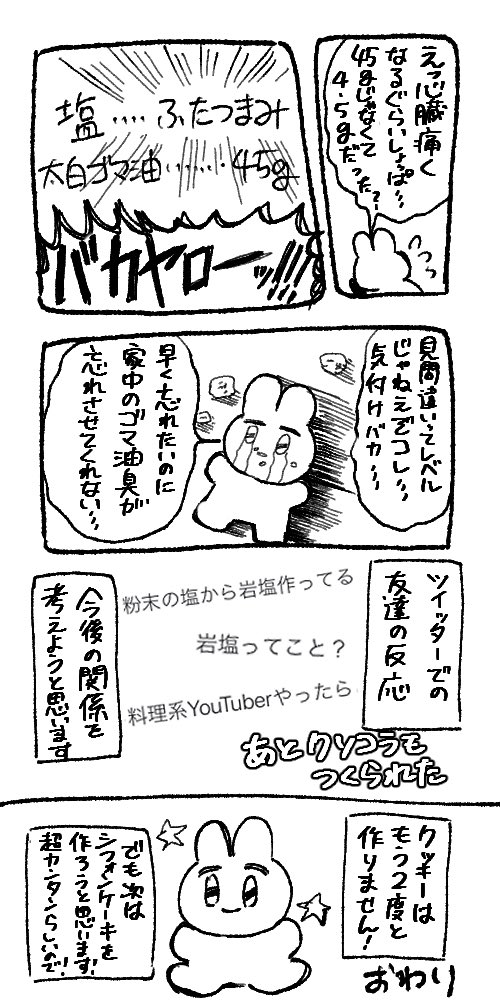 えっ心臓痛く
なるぐらいしょっぱ…
45gじゃなくて
4.5gだった?
塩....ふたつまみ
太白ゴマ油.......45g
バカヤローッ!!!
見間違いってレベル
じゃねえぞコレ…
気付けバカ…
早く忘れたいのに
家中のゴマ油臭が
忘れさせてくれない…
ツイッターでの
友達の反応
粉末の塩から岩塩作ってる
岩塩ってこと？
料理系YouTuberやったら
あとクソコラも
つくられた
今後の関係を
考えようと思います
クッキーは
もう2度と
作りません!
でも次は
シフォンケーキを
作ろうと思います!
超カンタンらしいので!
おわり